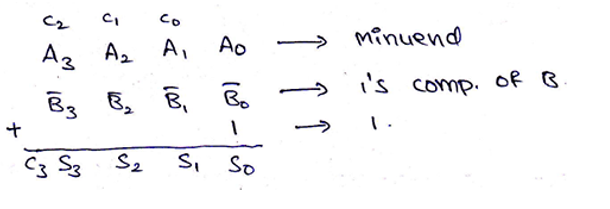 C₂ C₁ C₀
A₃ A₂ A₁ A₀ → Minuend
B̅₃ B̅₂ B̅₁ B̅₀ → 1's comp. of B.
+ 1 → 1.
C₃ S₃ S₂ S₁ S₀